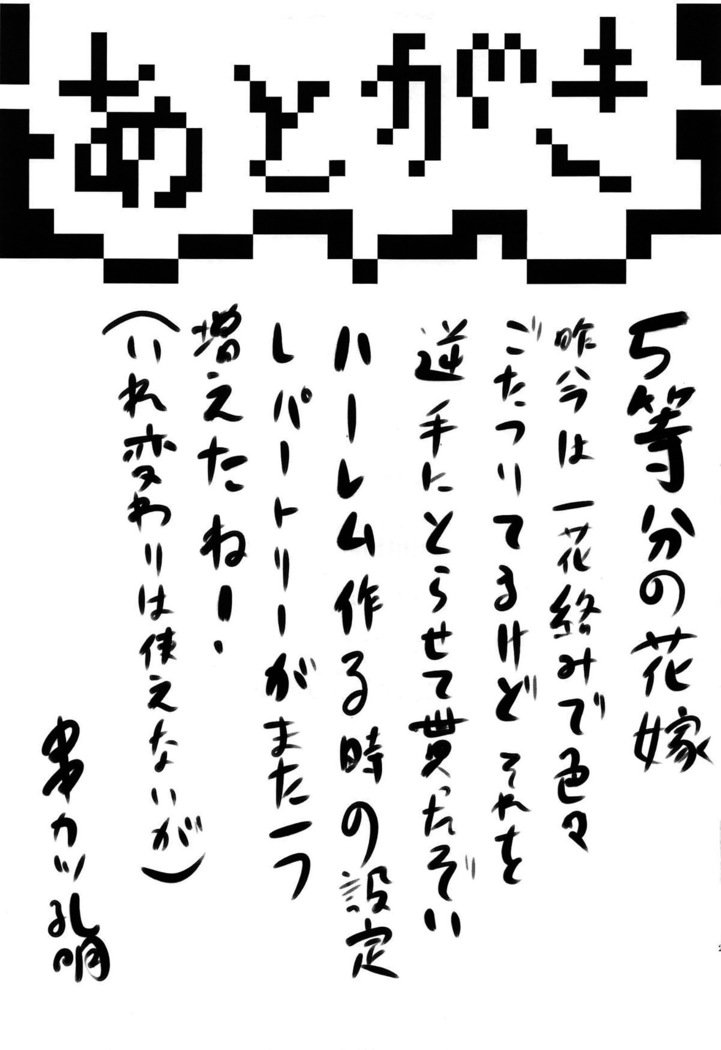 あとがき
5等分の花嫁
昨今は一花絡みで色々
ごたついてるけどそれを
逆手にとらせて貰ったぞい
ハーレム作る時の設定
レパートリーがまた一つ
増えたねー!
(いれ変わりは使えないが)
串カツ孔明